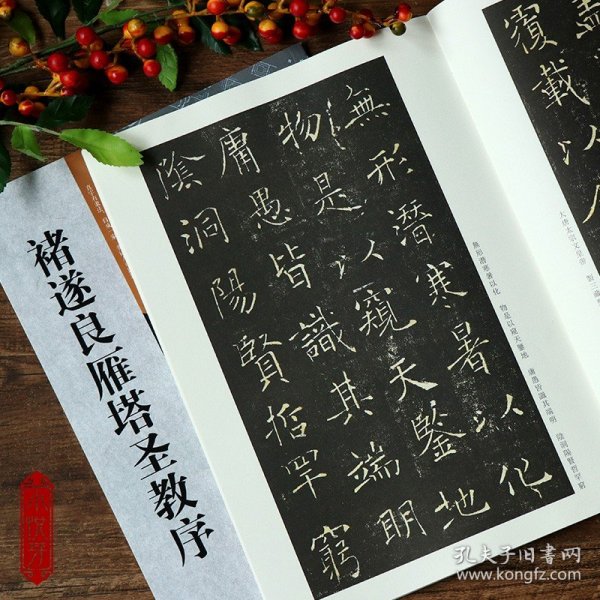 覆載以
大唐太宗文皇帝 製三藏
無形潛寒暑以化
物是以窺天鑒地
庸愚皆識其端明
陰洞陽賢哲罕窮
無形潛寒暑以化 物是以窺天鑒地 庸愚皆識其端明 陰洞陽賢哲罕窮
褚遂良雁塔圣教序
孔夫子旧书网
www.kongfz.com